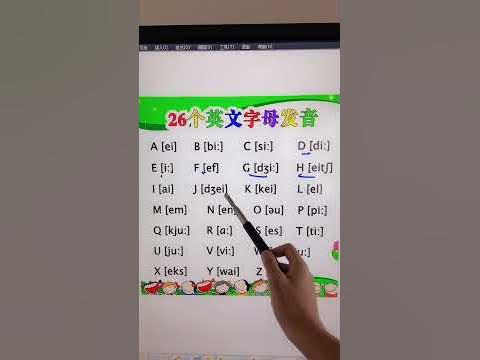 26个英文字母发音
A [ei] B [bi:] C [si:] D [di:]
E [i:] F [ef] G [dʒi:] H [eitʃ]
I [ai] J [dʒei] K [kei] L [el]
M [em] N [en] O [əu] P [pi:]
Q [kju:] R [ɑ:] S [es] T [ti:]
U [ju:] V [vi:]
X [eks] Y [wai] Z